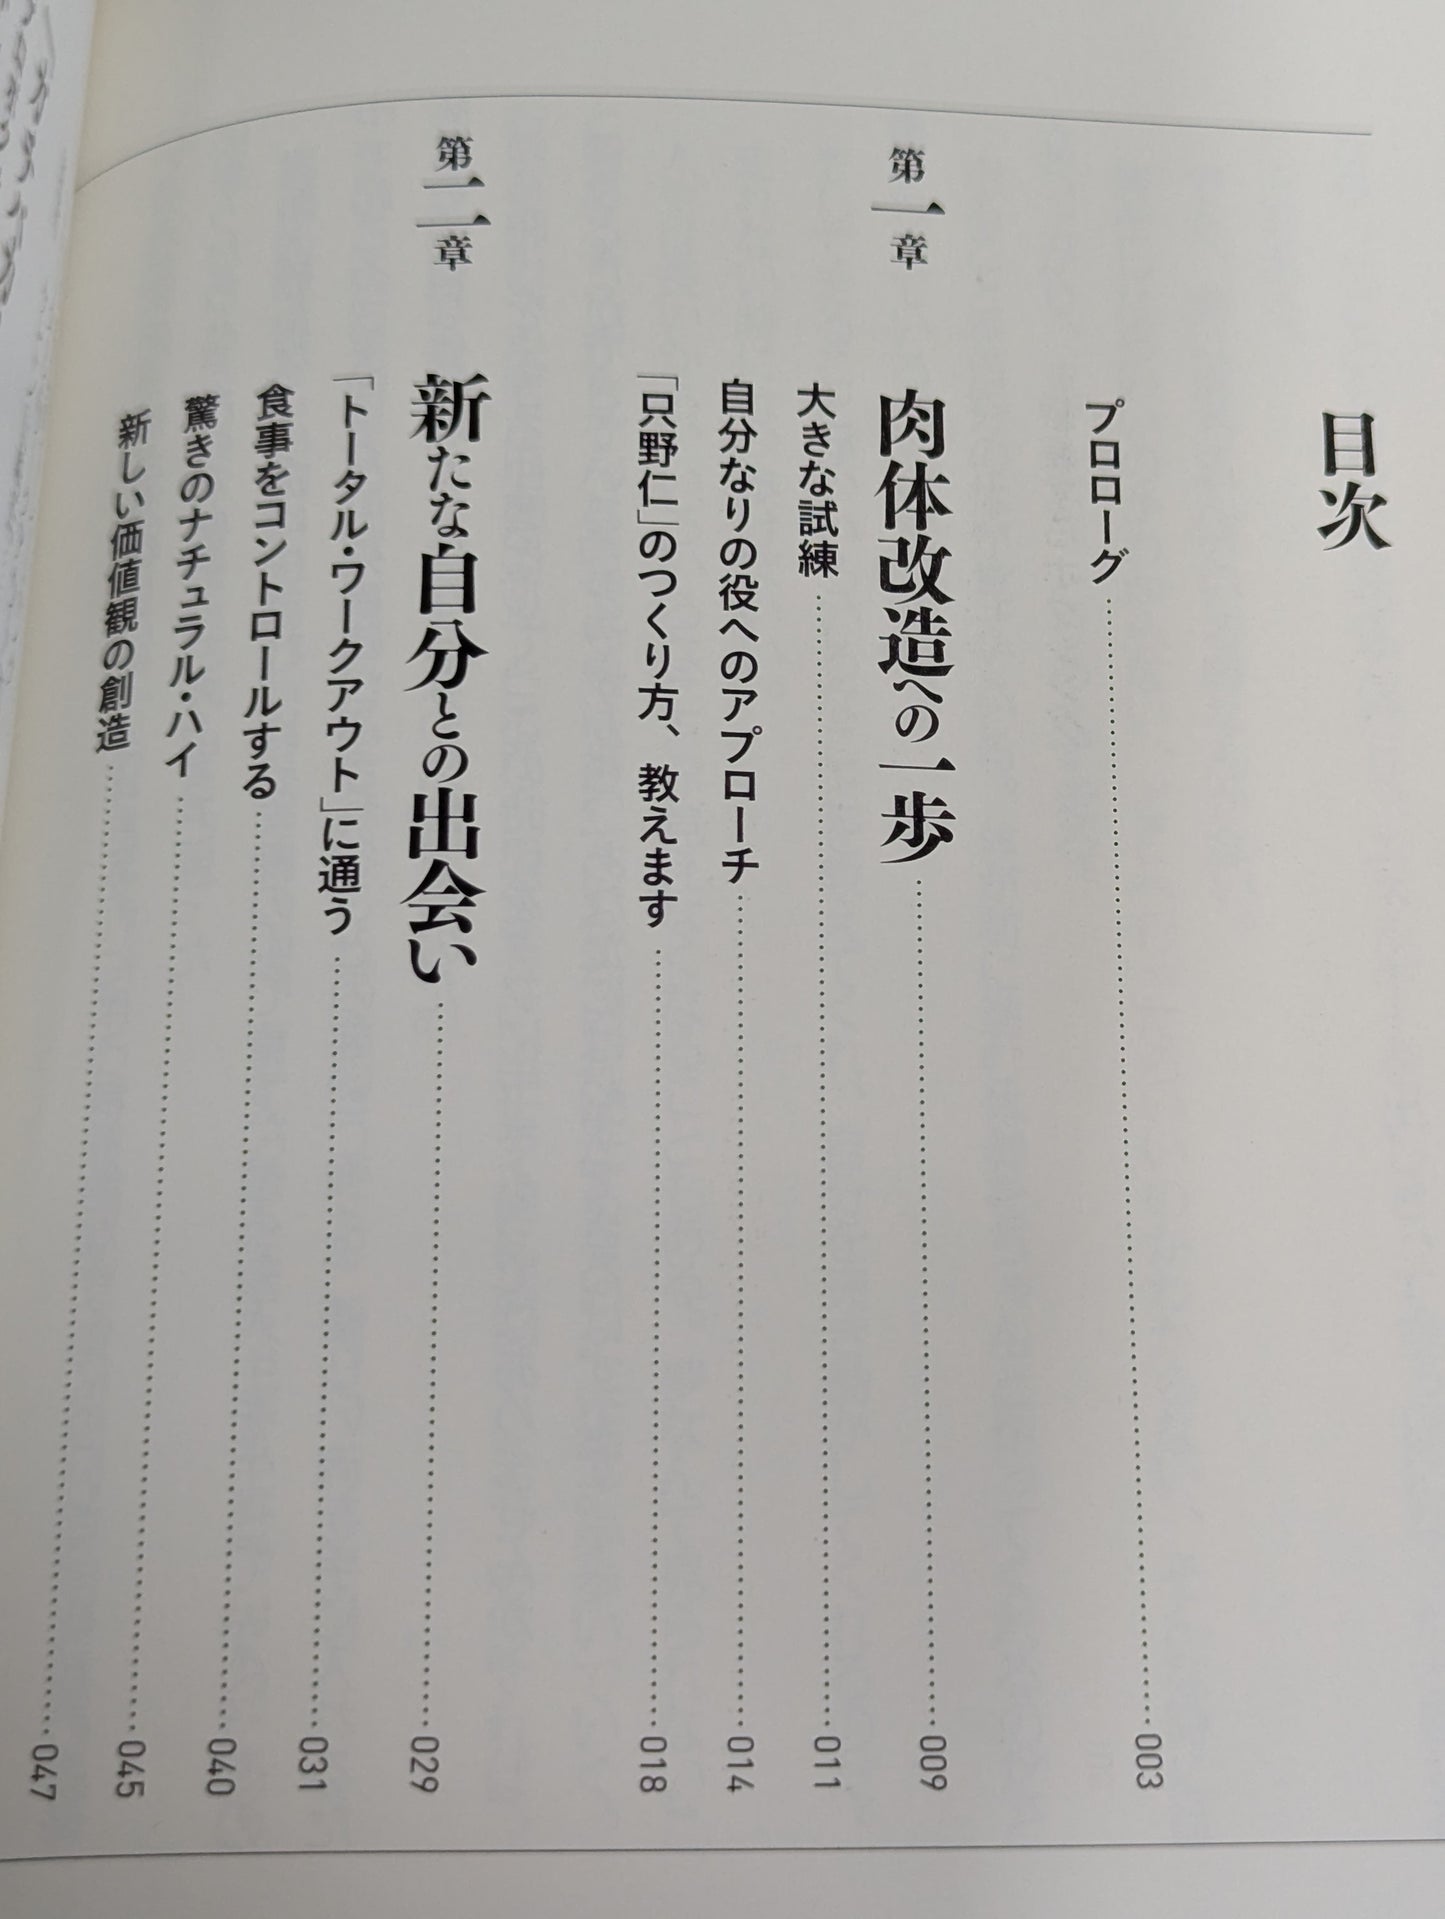 目次
プロローグ……003
第一章 肉体改造への一歩……009
大きな試練……011
自分なりの役へのアプローチ……014
「只野仁」のつくり方、教えます……018
第二章 新たな自分との出会い……029
「トータル・ワークアウト」に通う……031
食事をコントロールする……040
驚きのナチュラル・ハイ……045
新しい価値観の創造……047